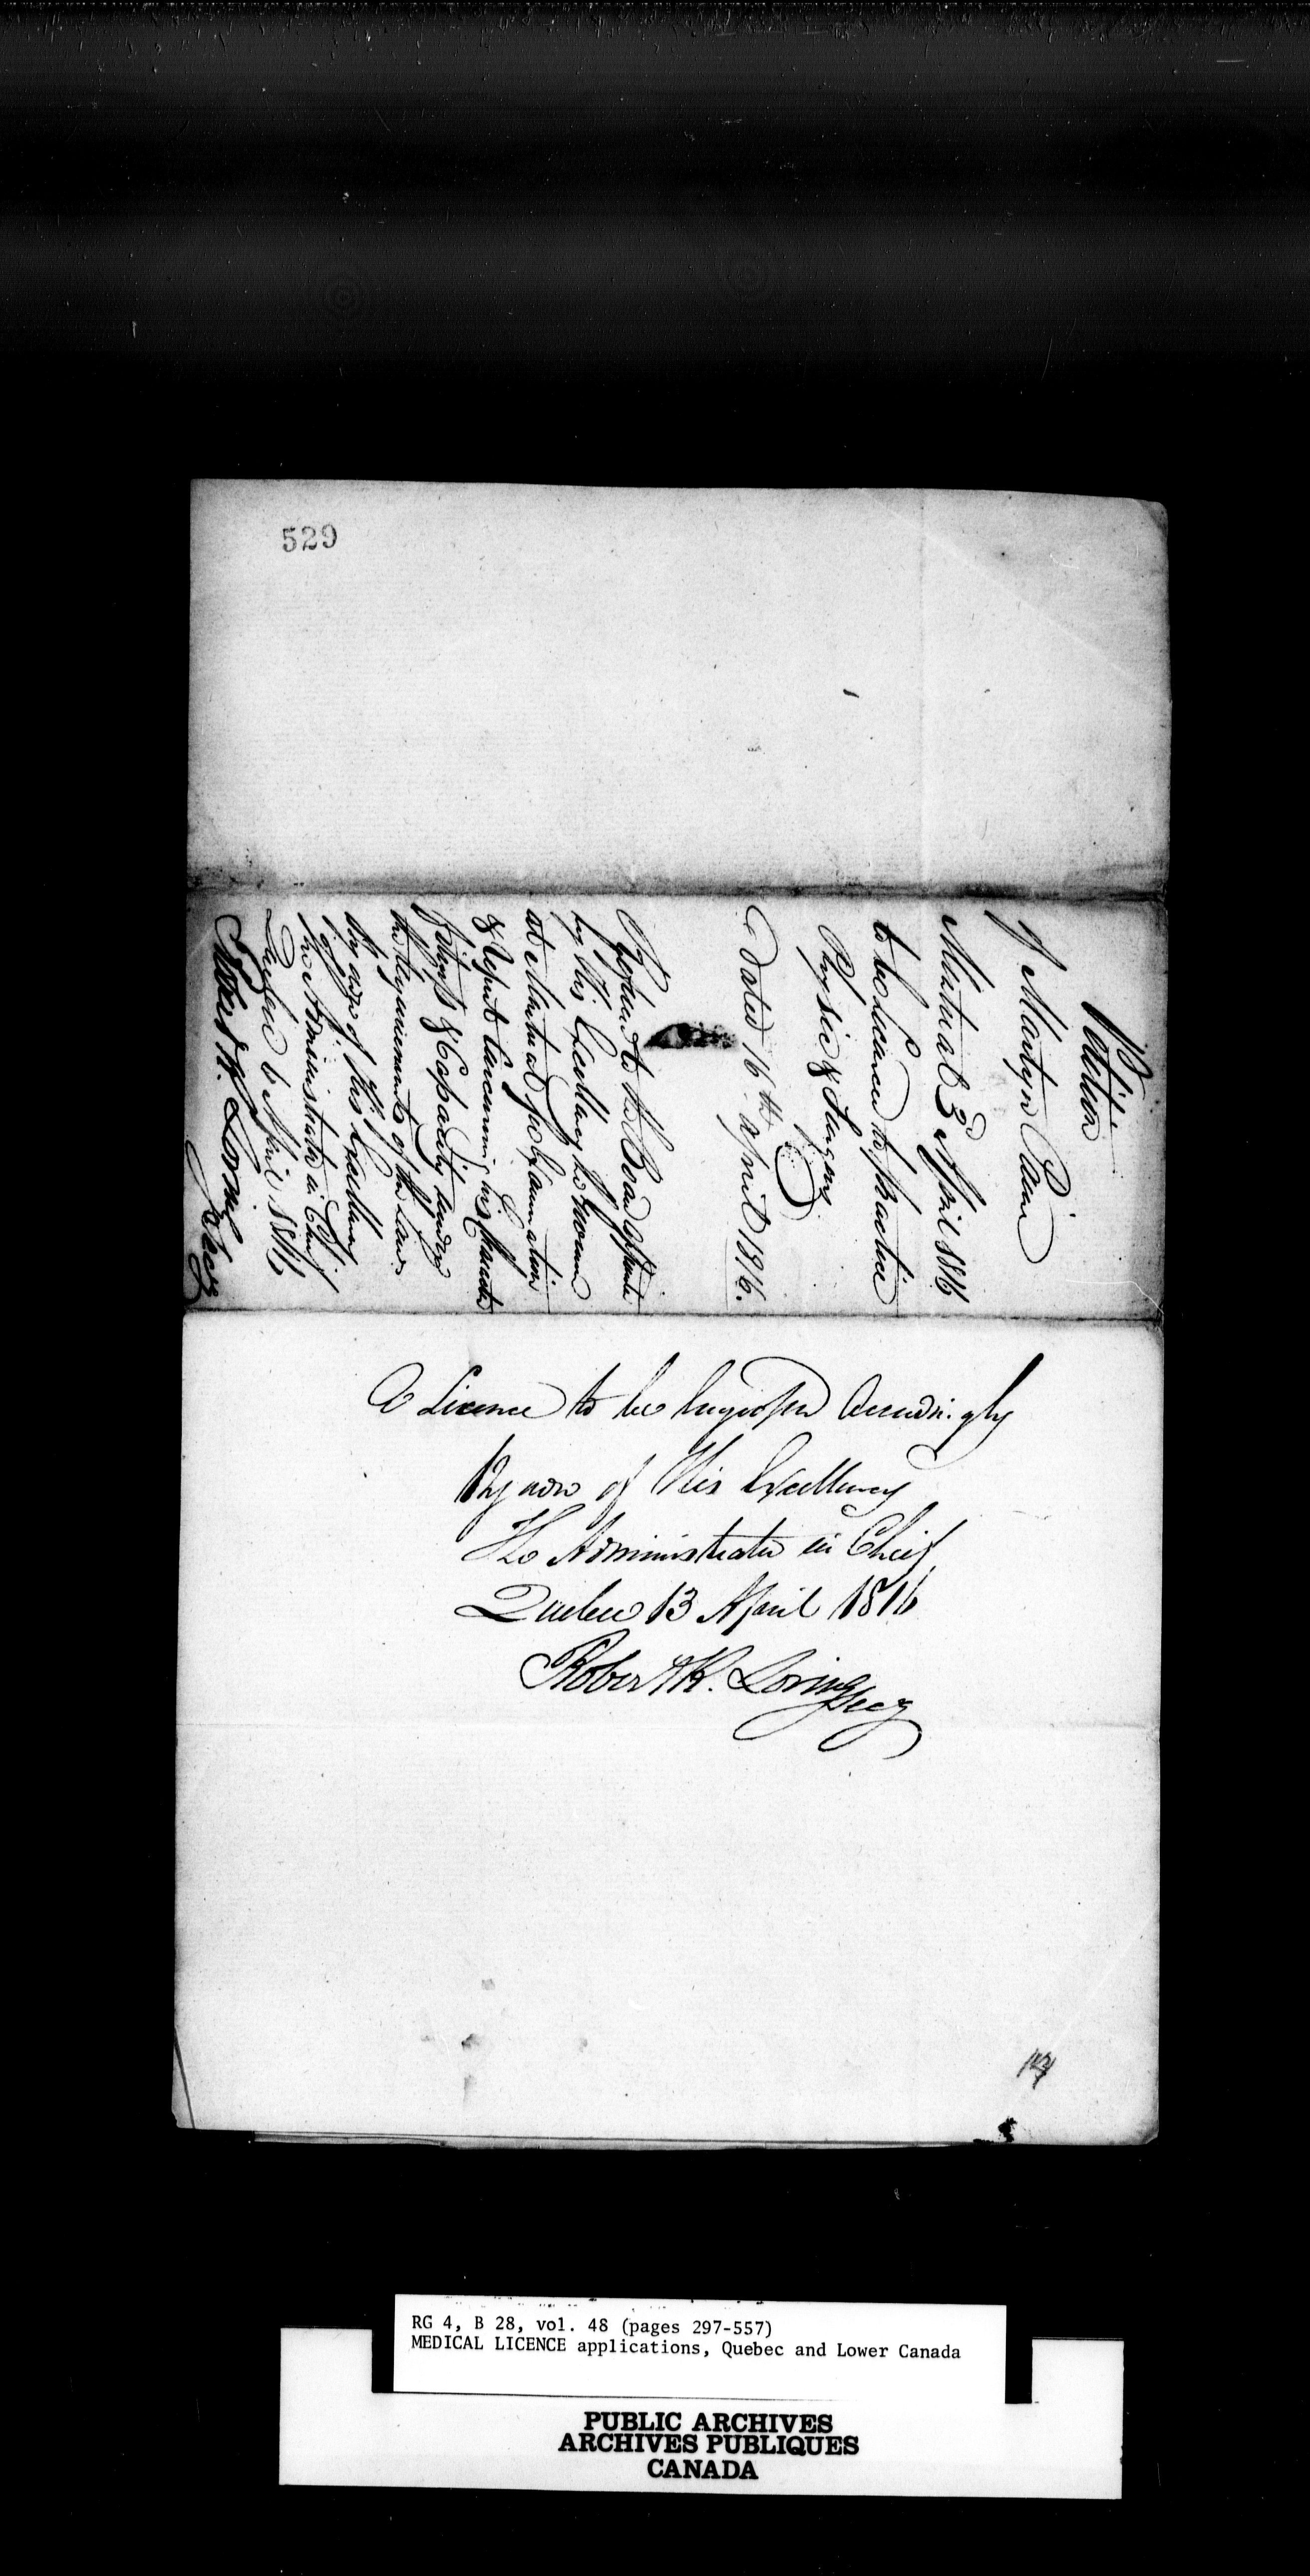 529
Petition
of Martyn Paine
Montreal 3d April 1816
to be Licenced to Practice
Physic & Surgery
Dated 16th April 1816.
Referred to the Board
by His Excellency
at Montreal for Examination
& Report Concerning his Character
fitness & Capacity under
the Requirements of the Law
By order of His Excellency
The Administrator in Chief
Quebec 6 April 1816
Robert R. Loring Secy
A Licence to be Engrossed Accordingly
By order of His Excellency
The Administrator in Chief
Quebec 13 April 1816
Robert R. Loring Secy
RG 4, B 28, vol. 48 (pages 297-557)
MEDICAL LICENCE applications, Quebec and Lower Canada
PUBLIC ARCHIVES
ARCHIVES PUBLIQUES
CANADA